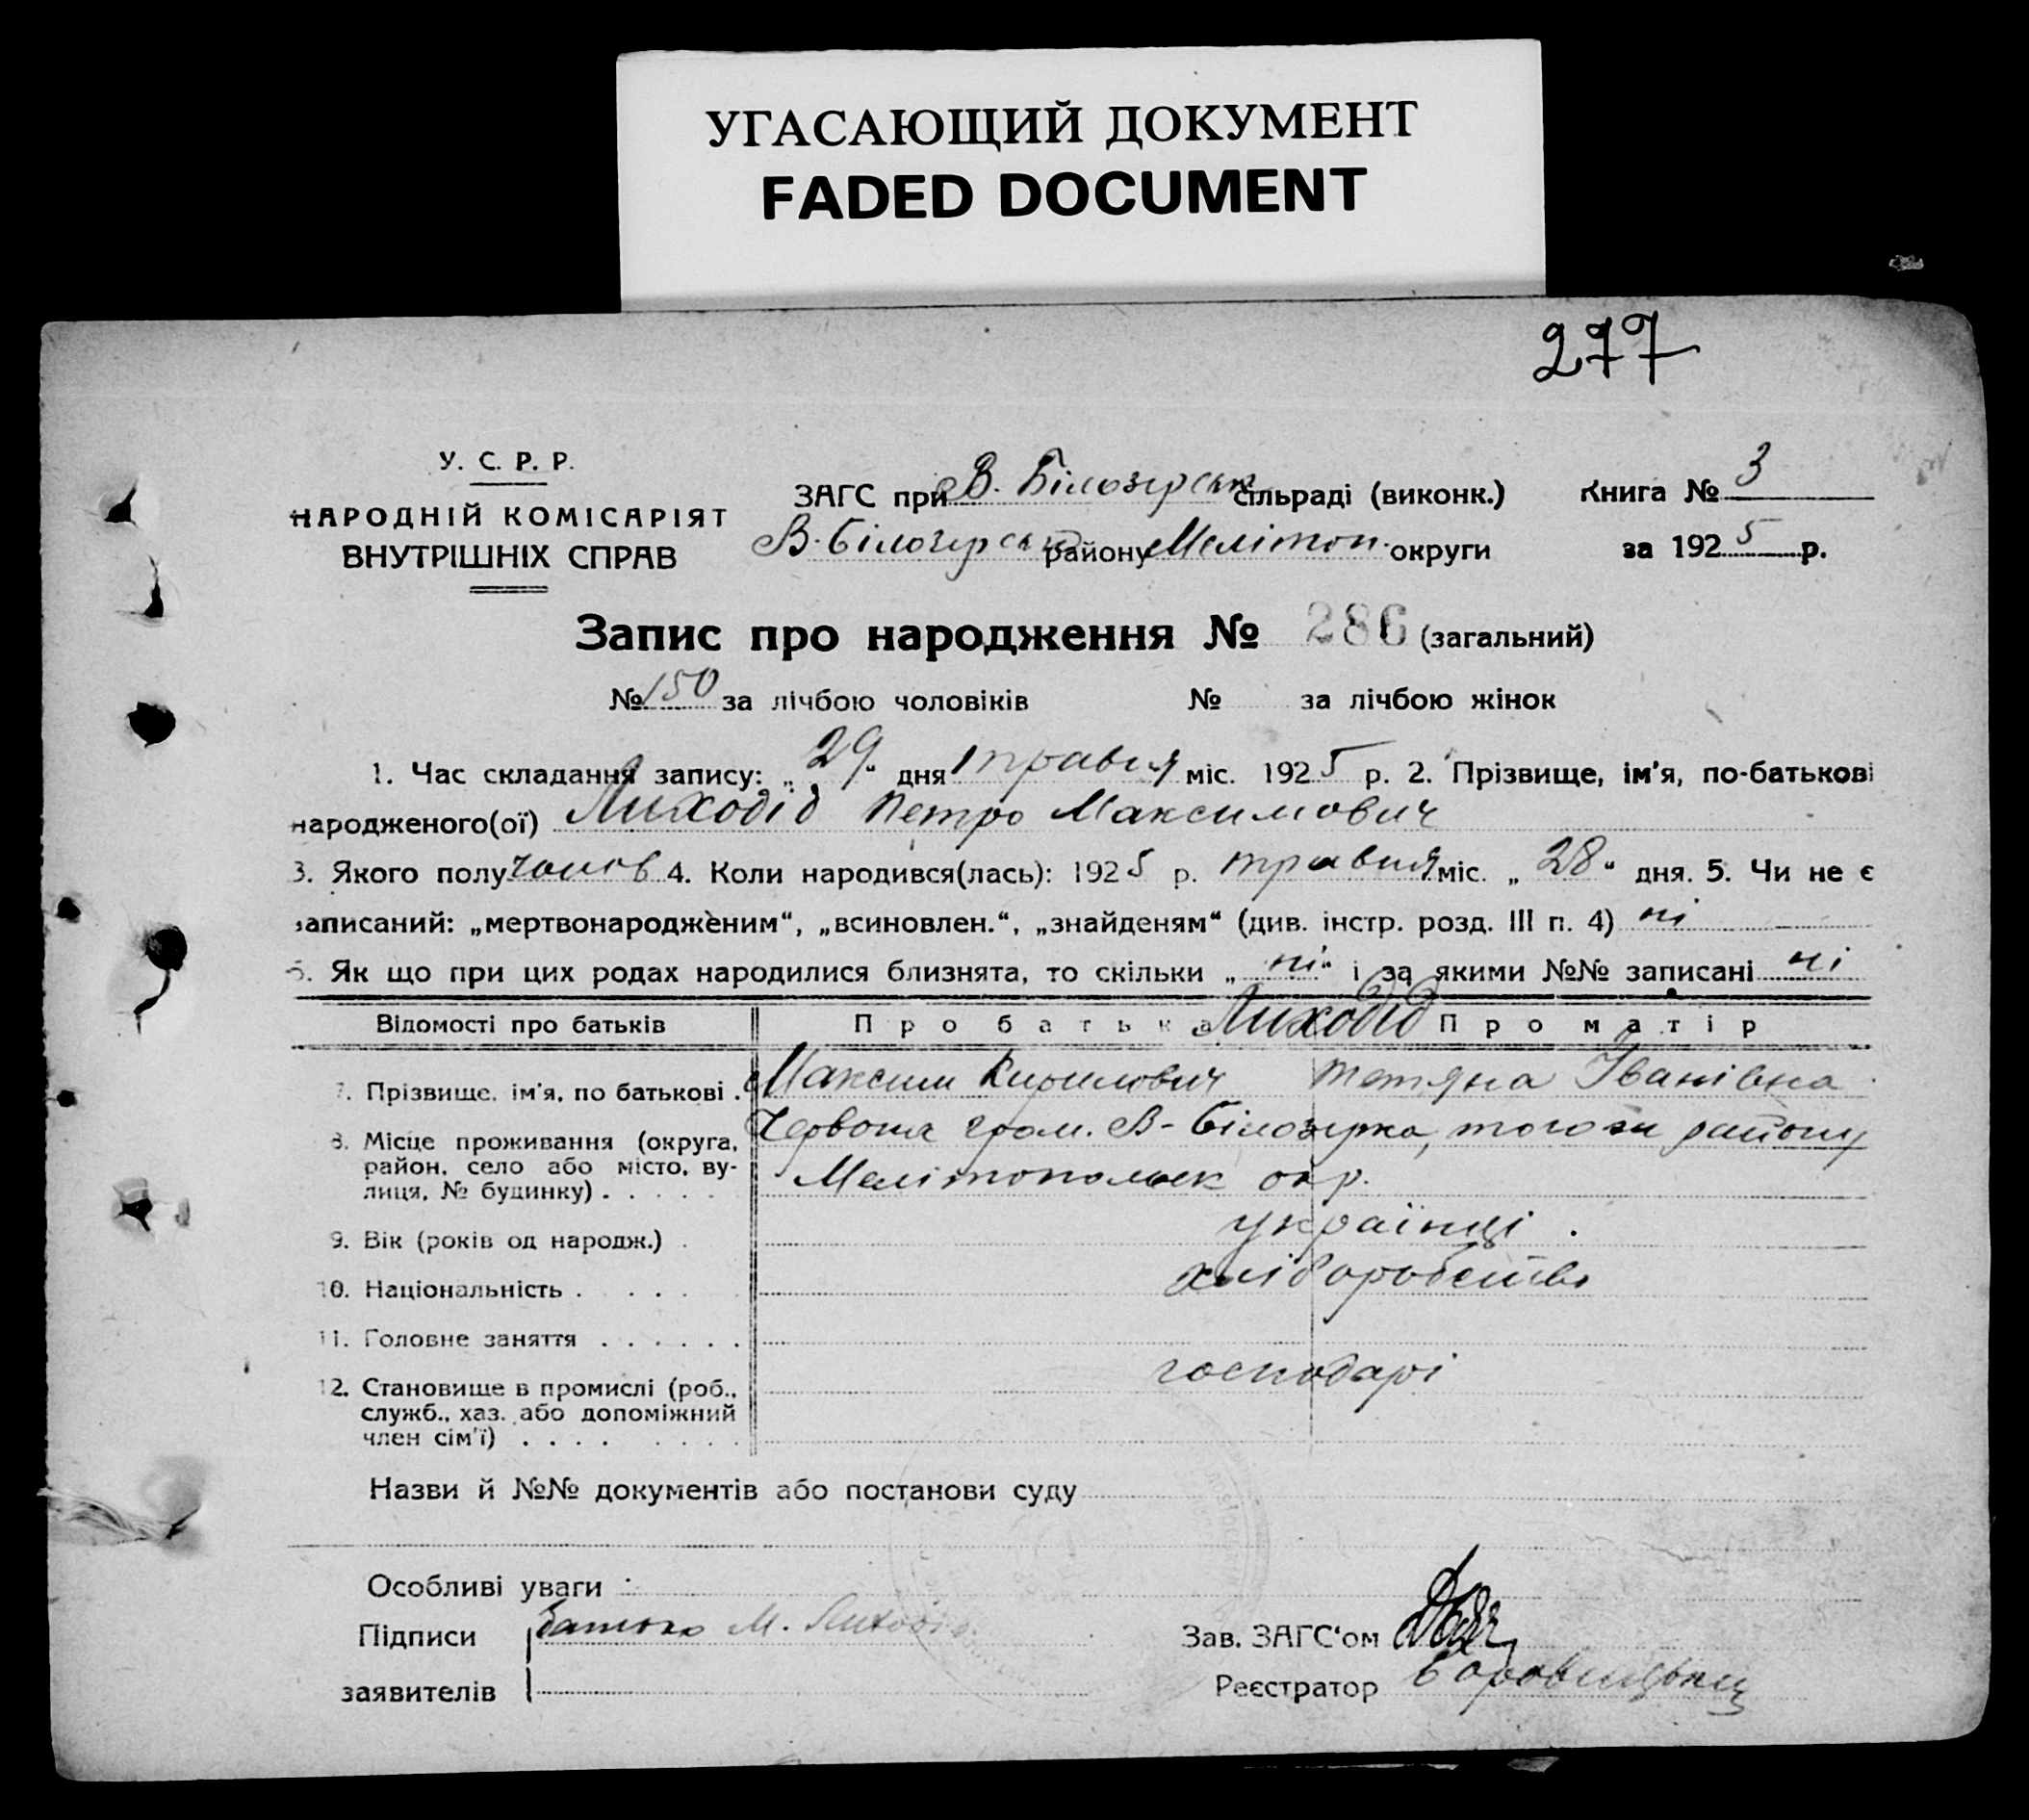 УГАСАЮЩИЙ ДОКУМЕНТ
FADED DOCUMENT
277
У. С. Р. Р.
НАРОДНІЙ КОМІСАРІЯТ
ВНУТРІШНІХ СПРАВ
ЗАГС при В. Білозерськ сільраді (виконк.)
В-Білозерськ району Мелітоп. округи
Книга № 3
за 1925 р.
Запис про народження № 286 (загальний)
№ 150 за лічбою чоловіків № за лічбою жінок
1. Час складання запису: „29“ дня травня міс. 1925 р. 2. Прізвище, ім'я, по-батькові
народженого(ої) Лиходід Петро Максимович
3. Якого полу чолов 4. Коли народився(лась): 1925 р. травня міс. „28“ дня. 5. Чи не є
записаний: „мертвонародженим“, „всиновлен.“, „знайденям“ (див. інстр. розд. III п. 4) ні
6. Як що при цих родах народилися близнята, то скільки „ні“ і за якими №№ записані ні
Відомості про батьків Про батька Лиходід Про матір
7. Прізвище, ім'я, по батькові . Максим Кирилович Тетяна Іванівна
8. Місце проживання (округа, район, село або місто, вулиця, № будинку) . . . . . Червона гром. В-Білозерка, того ж району
Мелітопольськ окр.
9. Вік (років од народж.) . українці .
10. Національність . . . . . хліборобство
11. Головне заняття . . . . . .
12. Становище в промислі (роб., служб., хаз. або допоміжний член сім'ї) . . . . господарі
Назви й №№ документів або постанови суду
Особливі уваги
Підписи батько М. Лиходід
заявителів
Зав. ЗАГС'ом
Реєстратор